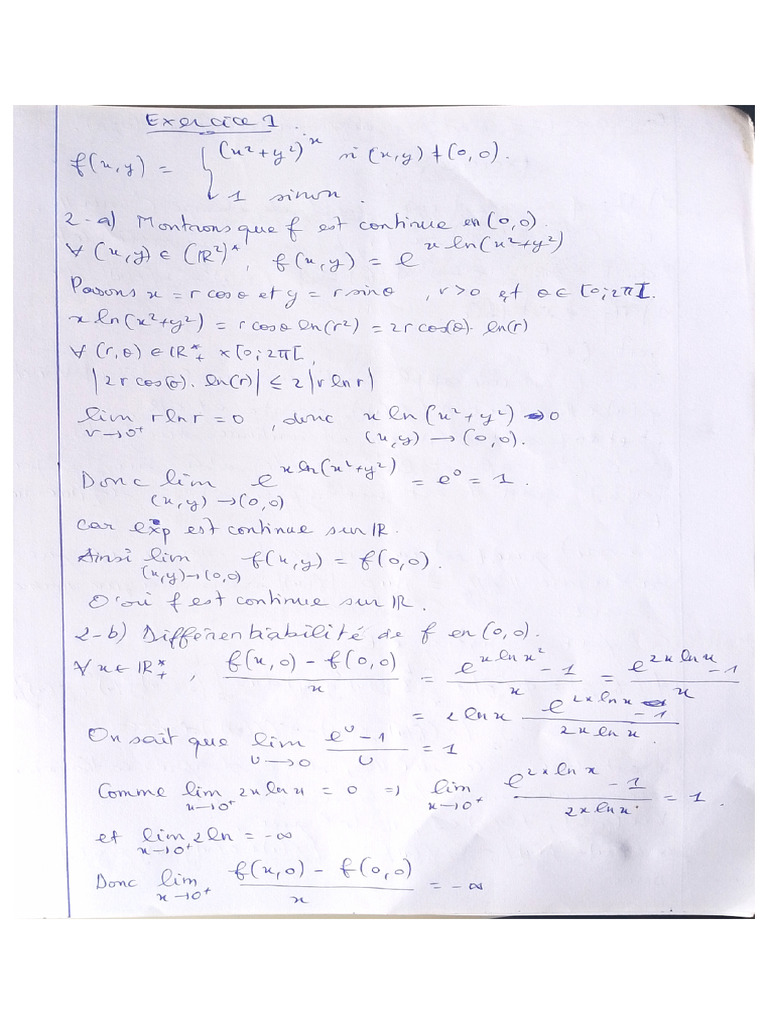 Exercice 1
f(x,y) = { (x²+y²)^x si (x,y) ≠ (0,0).
1 sinon.
2-a) Montrons que f est continue en (0,0).
∀ (x,y) ∈ (ℝ²)*, f(x,y) = e^{x ln(x²+y²)}
Posons x = r cosθ et y = r sinθ, r>0 et θ ∈ [0;2π[.
x ln(x²+y²) = r cosθ ln(r²) = 2r cos(θ). ln(r)
∀ (r,θ) ∈ ℝ*₊ × [0;2π[,
|2r cos(θ). ln(r)| ≤ 2|r ln r|
lim_{r→0⁺} r ln r = 0, donc x ln(x²+y²) → 0
(x,y) → (0,0).
Donc lim_{(x,y)→(0,0)} e^{x ln(x²+y²)} = e⁰ = 1.
car exp est continue sur ℝ.
Ainsi lim_{(x,y)→(0,0)} f(x,y) = f(0,0).
D'où f est continue sur ℝ.
2-b) Différentiabilité de f en (0,0).
∀ x ∈ ℝ*₊, (f(x,0) - f(0,0))/x = (e^{x ln x²} - 1)/x = (e^{2x ln x} - 1)/x
= 2 ln x (e^{2x ln x} - 1)/(2x ln x).
On sait que lim_{U→0} (e^U - 1)/U = 1
Comme lim_{x→0⁺} 2x ln x = 0 ⇒ lim_{x→0⁺} (e^{2x ln x} - 1)/(2x ln x) = 1.
et lim_{x→0⁺} 2 ln = -∞
Donc lim_{x→0⁺} (f(x,0) - f(0,0))/x = -∞